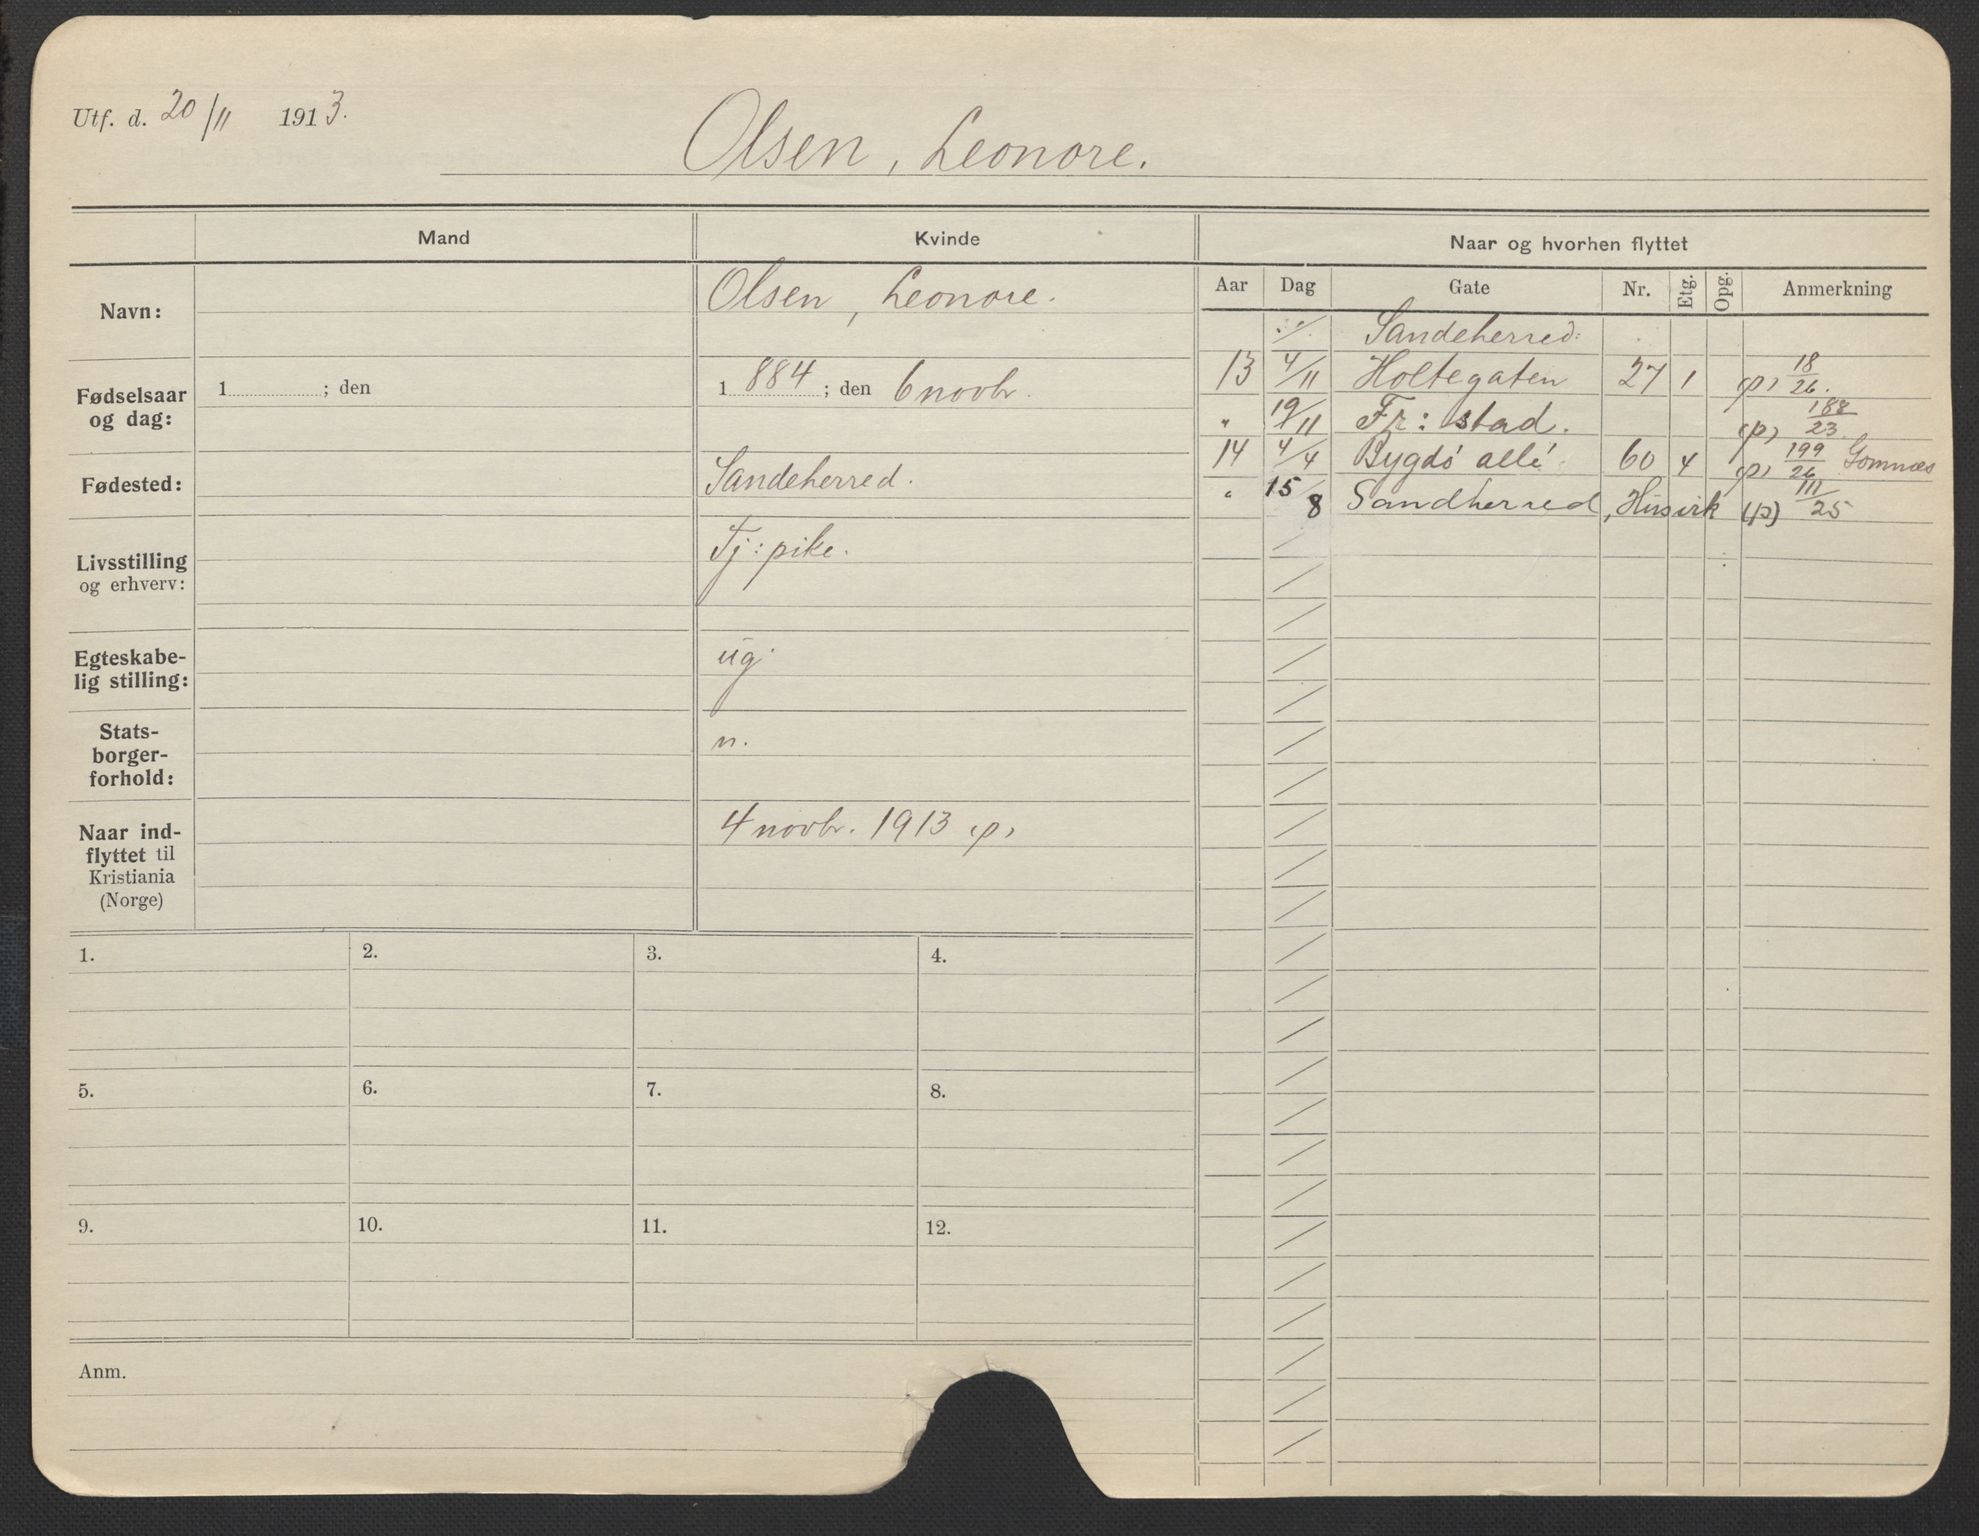 Utf. d. 20/11 1913.
Olsen, Leonore.
Mand Kvinde Naar og hvorhen flyttet
Aar Dag Gate Nr. Etg. Opg. Anmerkning
Navn: Olsen, Leonore.
Fødselsaar og dag: 1 ; den 1 884 ; den 6 novbr.
Fødested: Sandeherred.
Livsstilling og erhverv: Tj: pike.
Egteskabe-
lig stilling: ug.
Stats-
borger-
forhold: n.
Naar ind-
flyttet til
Kristiania
(Norge) 4 novbr. 1913 (p)
Sandeherred:
13 4/11 Holtegaten 27 1 (p) 18/26.
" 19/11 Fr: stad. (p) 188/23.
14 4/4 Bygdö allé 60 4 (p) 199/26 Gomnæs
" 15/8 Sandherred, Husvik (p) 111/25
1. 2. 3. 4.
5. 6. 7. 8.
9. 10. 11. 12.
Anm.